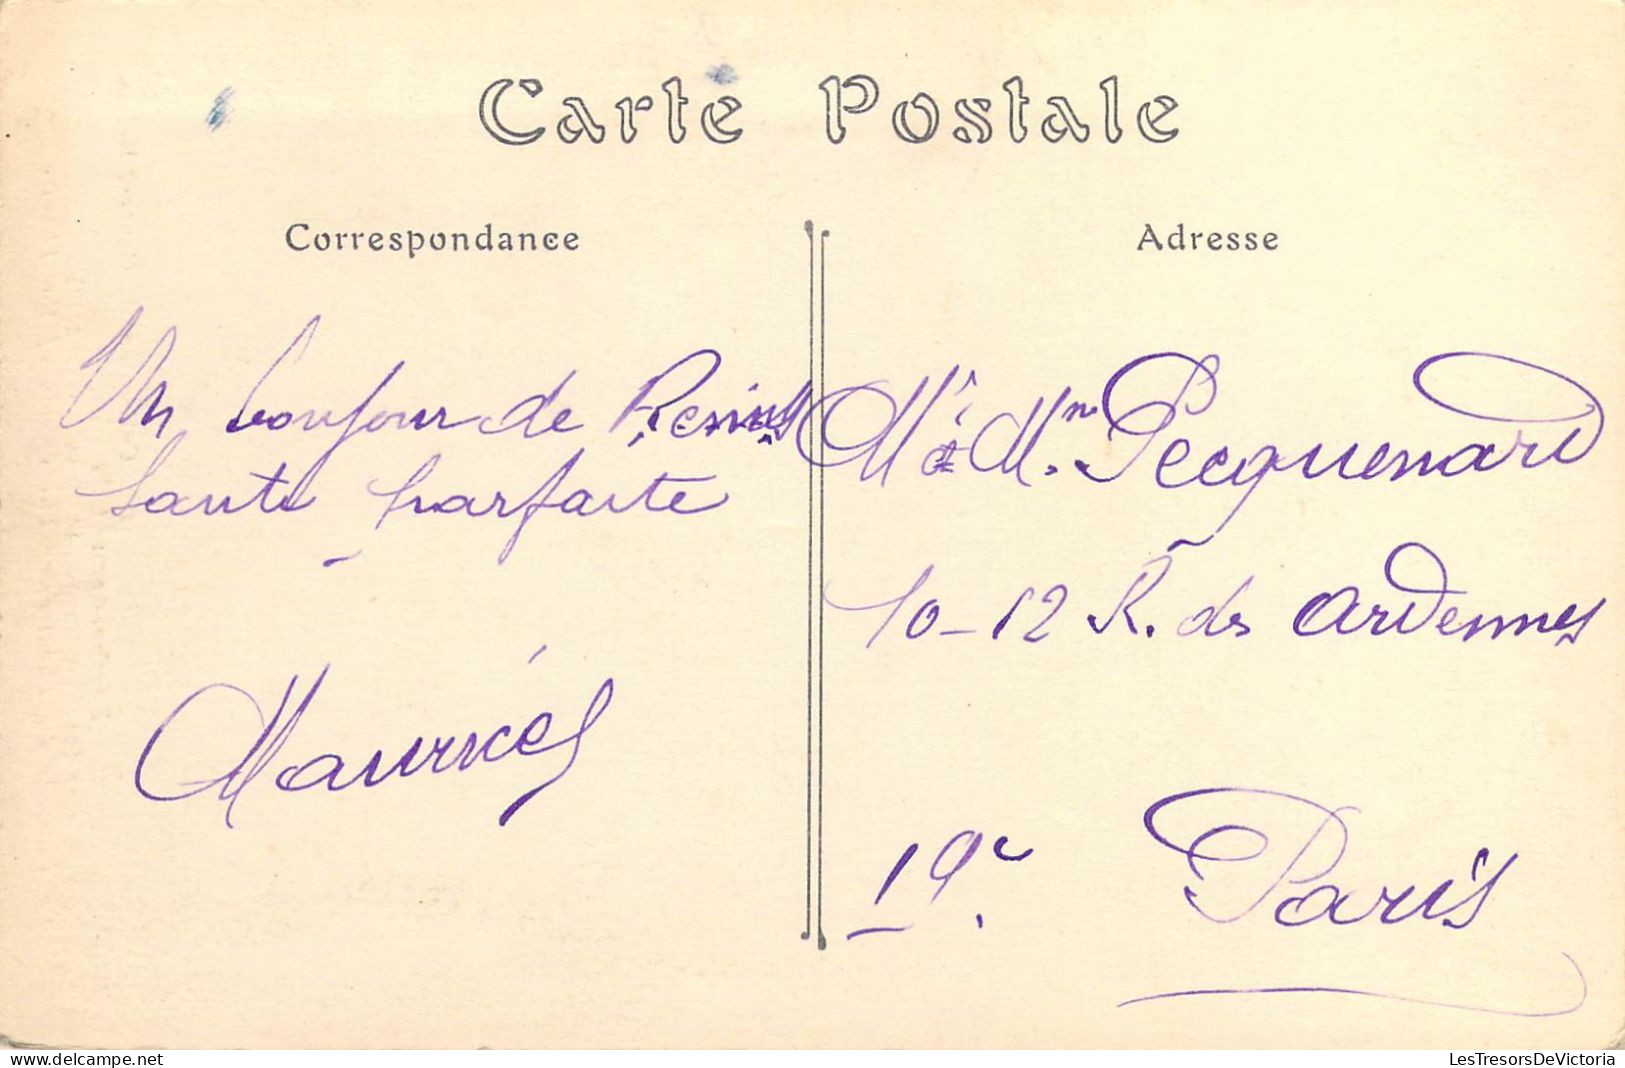 Carte Postale
Correspondance
Un bonjour de Reims
Santé parfaite
Maurice
Adresse
Mr & Mme Pecquenard
10-12 R. des Ardennes
19e. Paris
LesTresorsDeVictoria